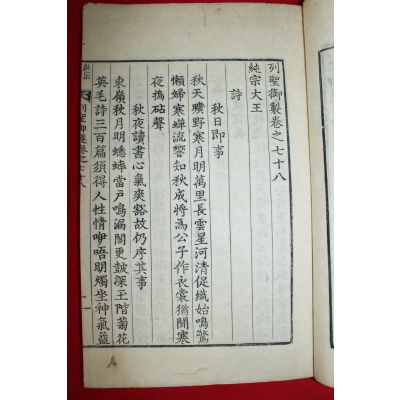 列聖御製卷之七十八
純宗大王
詩
秋日即事
秋天曠野寒月明萬里長雲星河清促織始鳴驚
懶婦寒蟬流響知秋成將爲公子作衣裳猶聞寒
夜擣砧聲
秋夜讀書心氣爽豁故仍序其事
東嶺秋月明蟋蟀當戶鳴漏閣更皷深玉階菊花
英毛詩三百篇須得人性情咿唔明燭坐神氣益
列聖御製卷之七十八